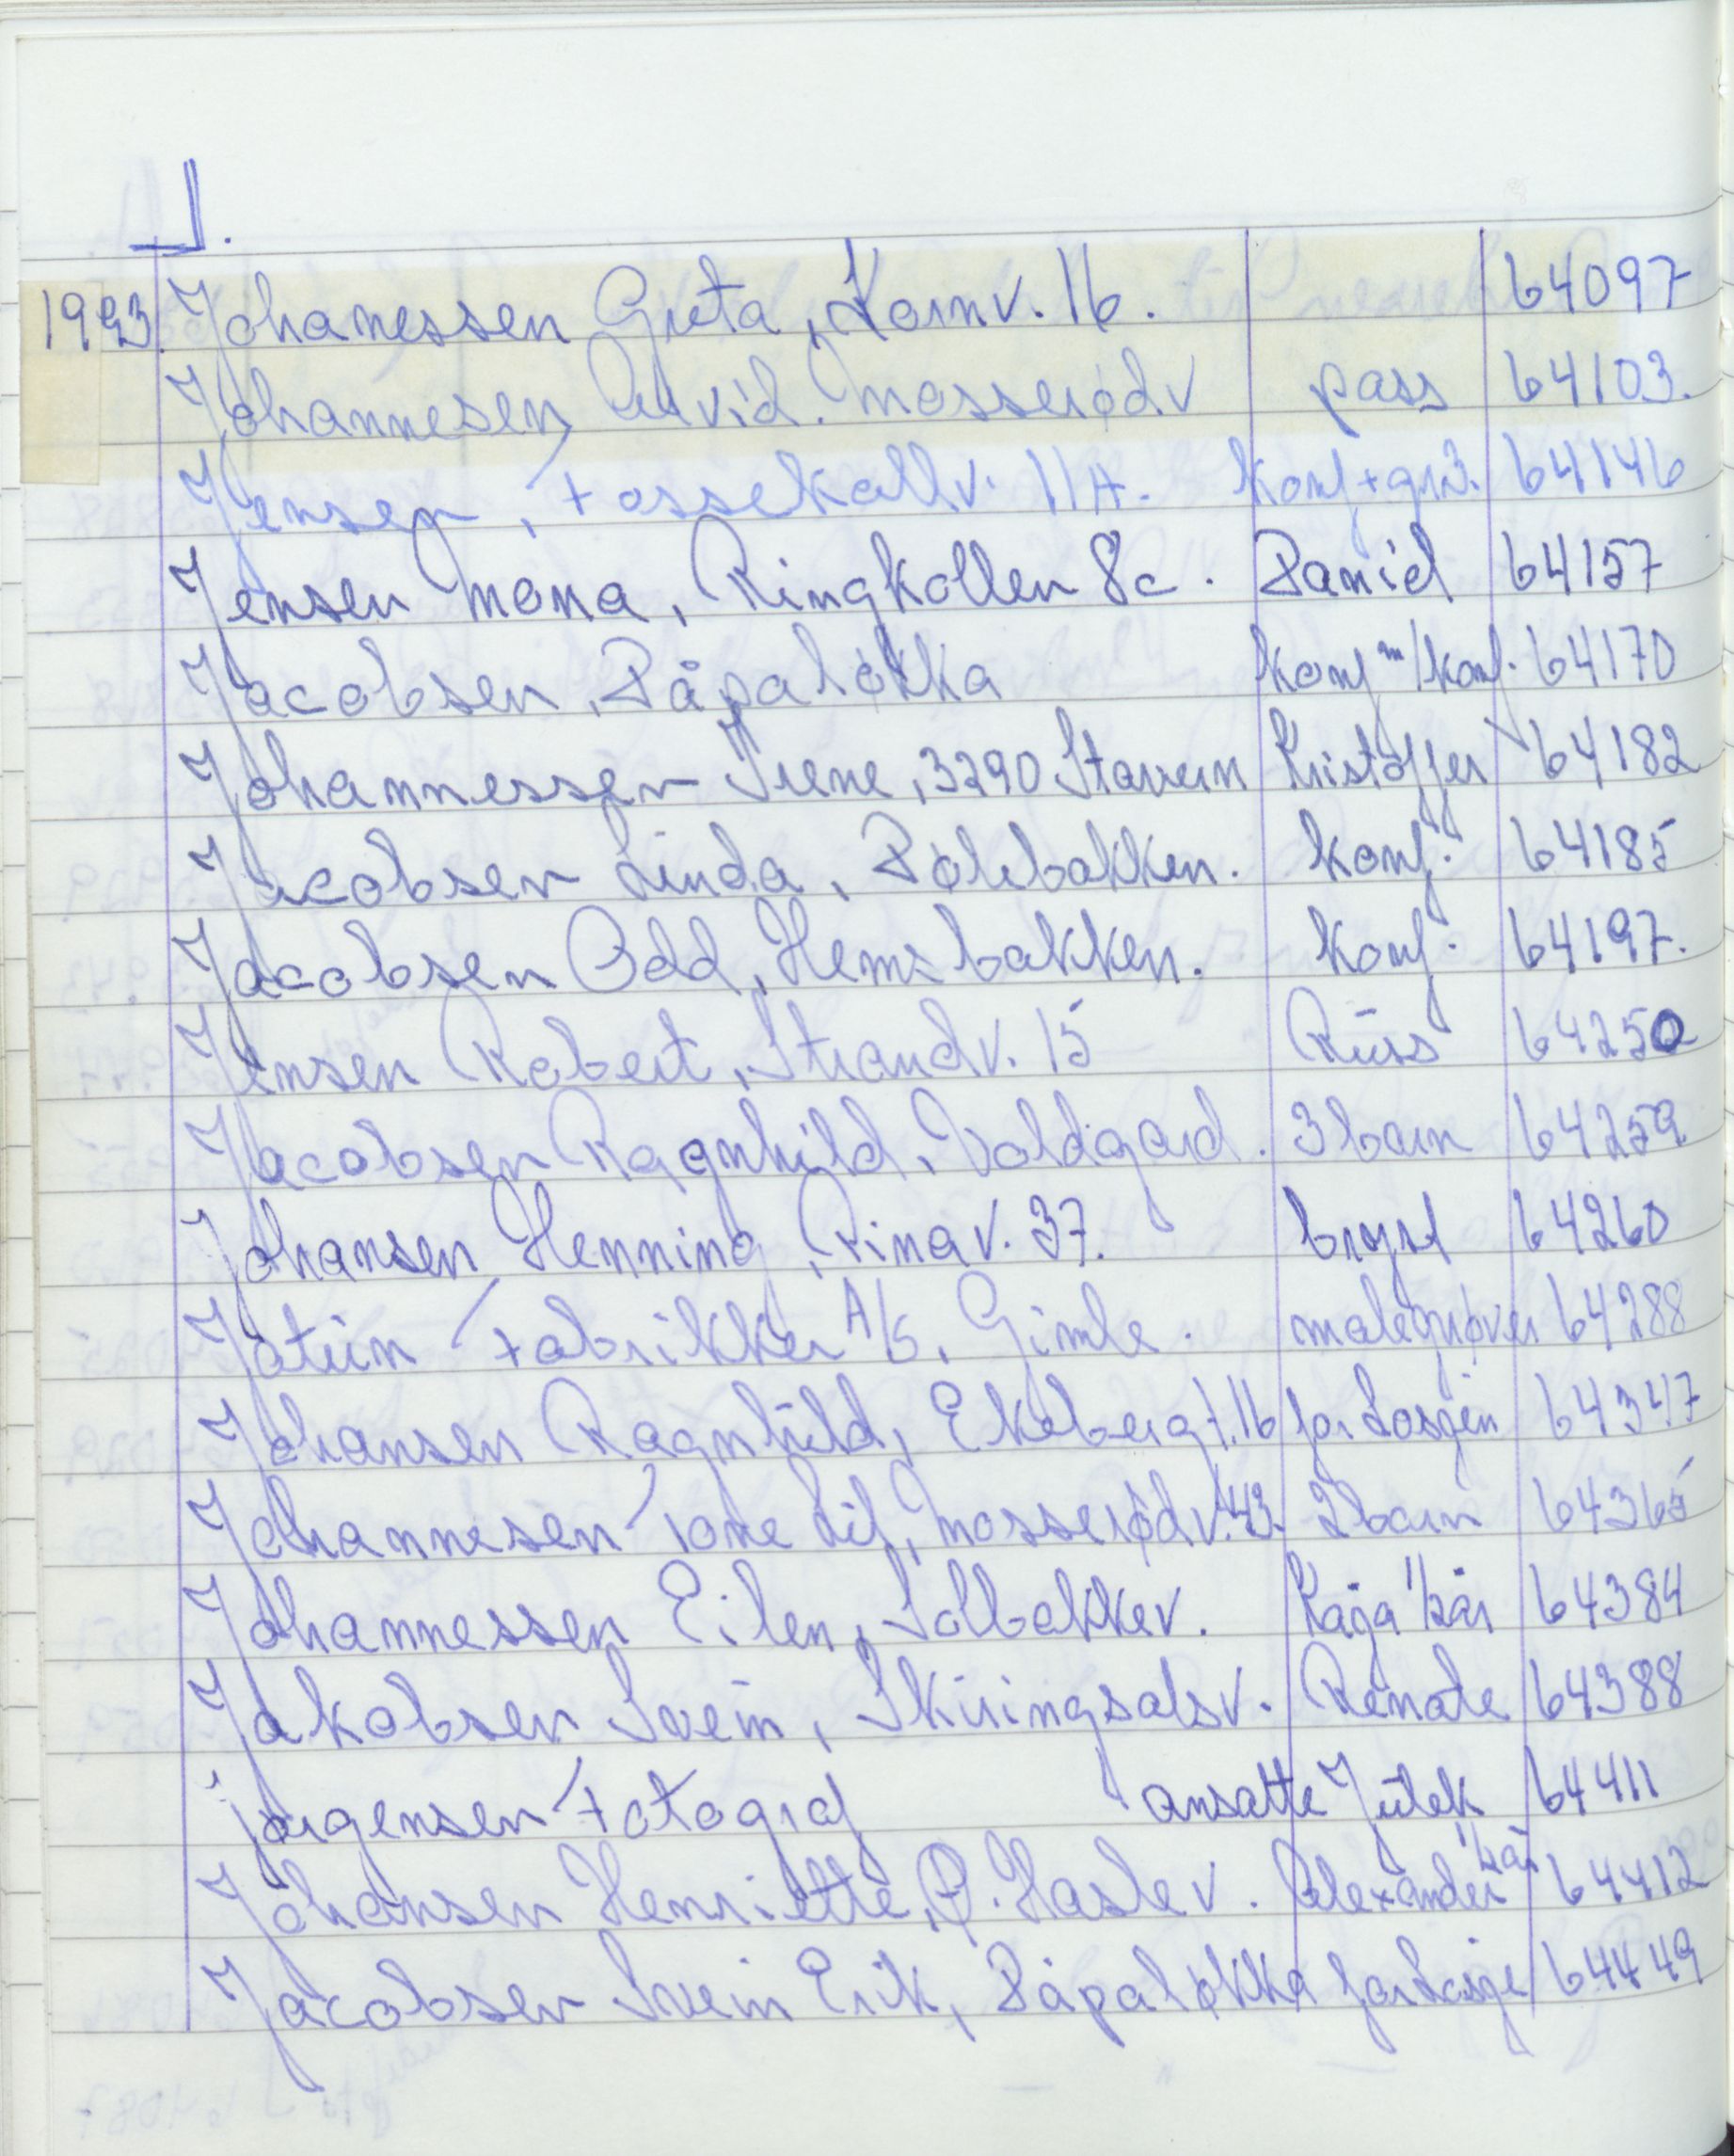 J.
1993. Johanessen Greta, Kornv. 16. 64097
Johannesen Arvid. Mosserødv pass 64103.
Jensen, Fossekallv. 11A. konf+gr.b. 64146
Jensen Mona, Ringkollen 8c. Daniel 64157
Jacobsen, Dåpaløkka konf m/konf. 64170
Johannessen Irene, 3290 Stavern Kristoffer 64182
Jacobsen Linda, Dølebakken. konf. 64185
Jacobsen Odd, Hemsbakken. konf. 64197.
Jensen Robert, Strandv. 15 Riis 64250
Jacobsen Ragnhild, Valdgard. 3 barn 64259
Johansen Henning, Rinav. 37. bryst 64260
Jotun Fabrikker A/S, Gimle. maleprøver 64288
Johansen Ragnhild, Ekebergt. 16 for Losjen 64347
Johannesen Tone Lil, Mosserødv. 43. 2 barn 64365
Johannessen Eilen, Solbakkev. Kaja 1/2 år 64384
Jakobsen Svein, Skiringsalsv. Renate 64388
jørgensen Fotograf ansatte Jutek 64411
Johansen Henriette, P. Haslev. Alexander 1/2 år 64412
Jacobsen Svein Erik, Dåpaløkka for Losje 64449